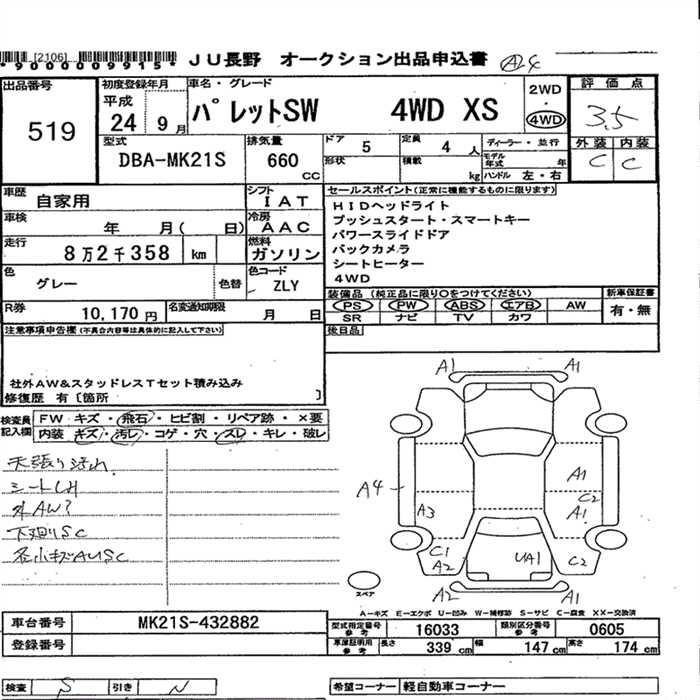 [2106]
*9000009915*
JU長野 オークション出品申込書
A4
出品番号
519
初度登録年月
平成
24 9月
車名・グレード
パレットSW 4WD XS
2WD
・
4WD
評価点
3.5
外装 内装
C C
型式
DBA-MK21S
排気量
660
CC
ドア
5
形状
定員
4 人
積載
kg
ディーラー・並行
モデル年式 年
ハンドル 左・右
車歴
自家用
シフト
IAT
車検
年 月( 日)
冷房
AAC
走行
8万2千358 km
燃料
ガソリン
色
グレー
色替
色コード
ZLY
R券
10,170円
名変通知期限
月 日
セールスポイント(正常に機能するものに限ります)
HIDヘッドライト
プッシュスタート・スマートキー
パワースライドドア
バックカメラ
シートヒーター
4WD
装備品(純正品に限り○をつけてください)
PS PW ABS エアB AW
SR ナビ TV カワ
新車保証書
有・無
後日品
注意事項申告欄(不具合内容等は具体的に記入して下さい)
社外AW&スタッドレスTセット積み込み
修復歴 有〔箇所 〕
検査員記入欄
FW キズ・飛石・ヒビ割・リペア跡・×要
内装 キズ・汚レ・コゲ・穴・スレ・キレ・破レ
天張り汚れ
シートLH
外AW?
下廻りSC
各小キズAUSC
A1 A1
A4
A3
A1
C2
A1
C1
A2
UA1
C2
A2 A1
スペア
A-キズ E-エクボ U-凹み W-補修跡 S-サビ C-腐食 XX-交換済
車台番号
MK21S-432882
登録番号
型式指定番号
参考
16033
類別区分番号
参考
0605
車庫証明用
参考
長さ
339 cm
幅
147 cm
高さ
174 cm
検査 S
引き N
希望コーナー 軽自動車コーナー